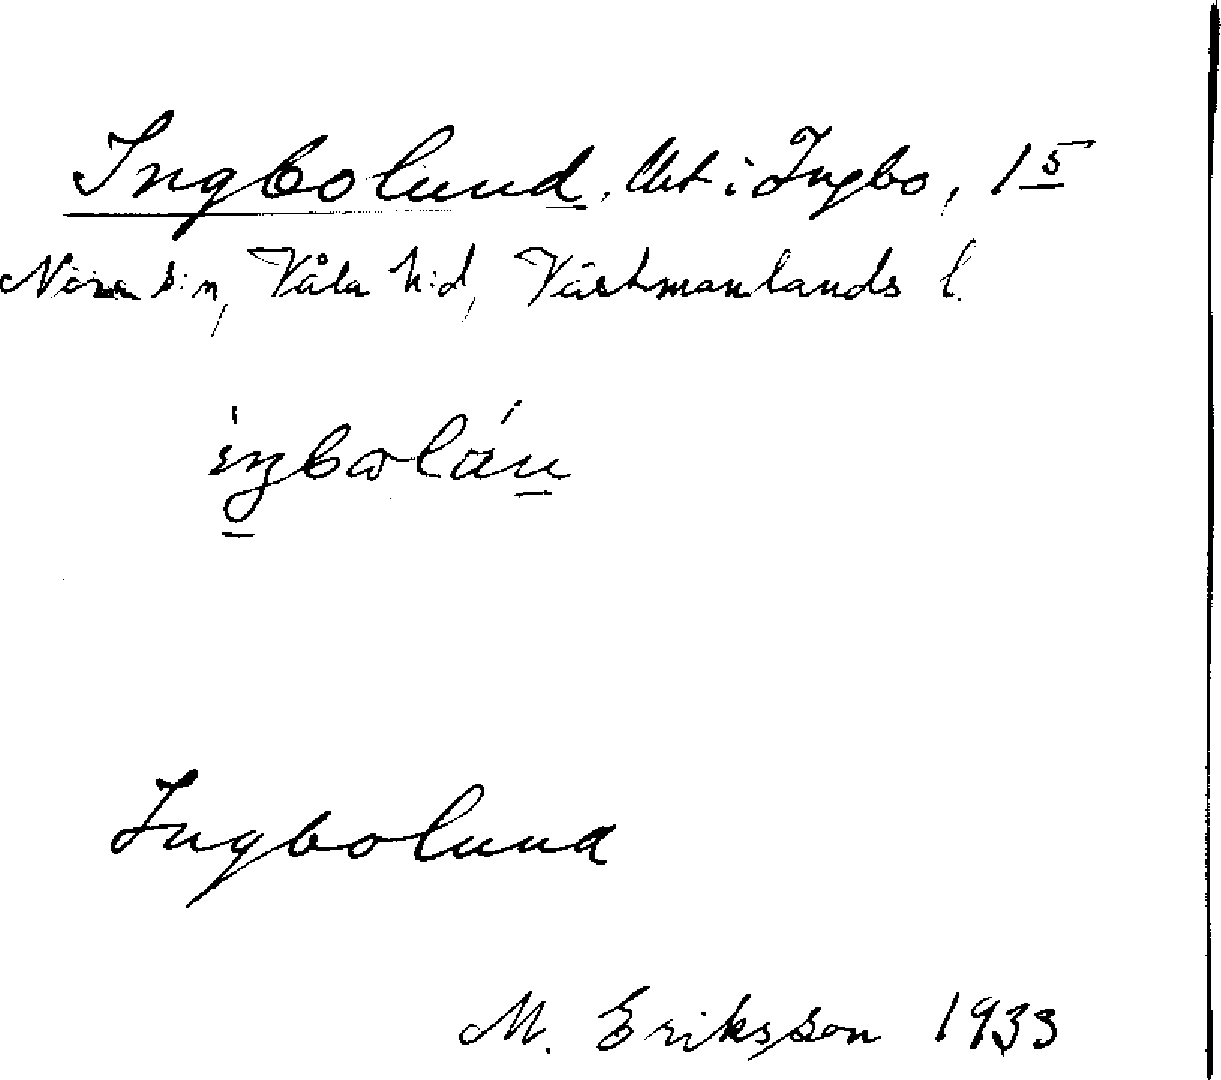 Ingbolund, Utt. i Ingbo, 1⁵
Nora s:n, Våla h:d, Västmanlands l.
Ingbolund
M. Eriksson 1933